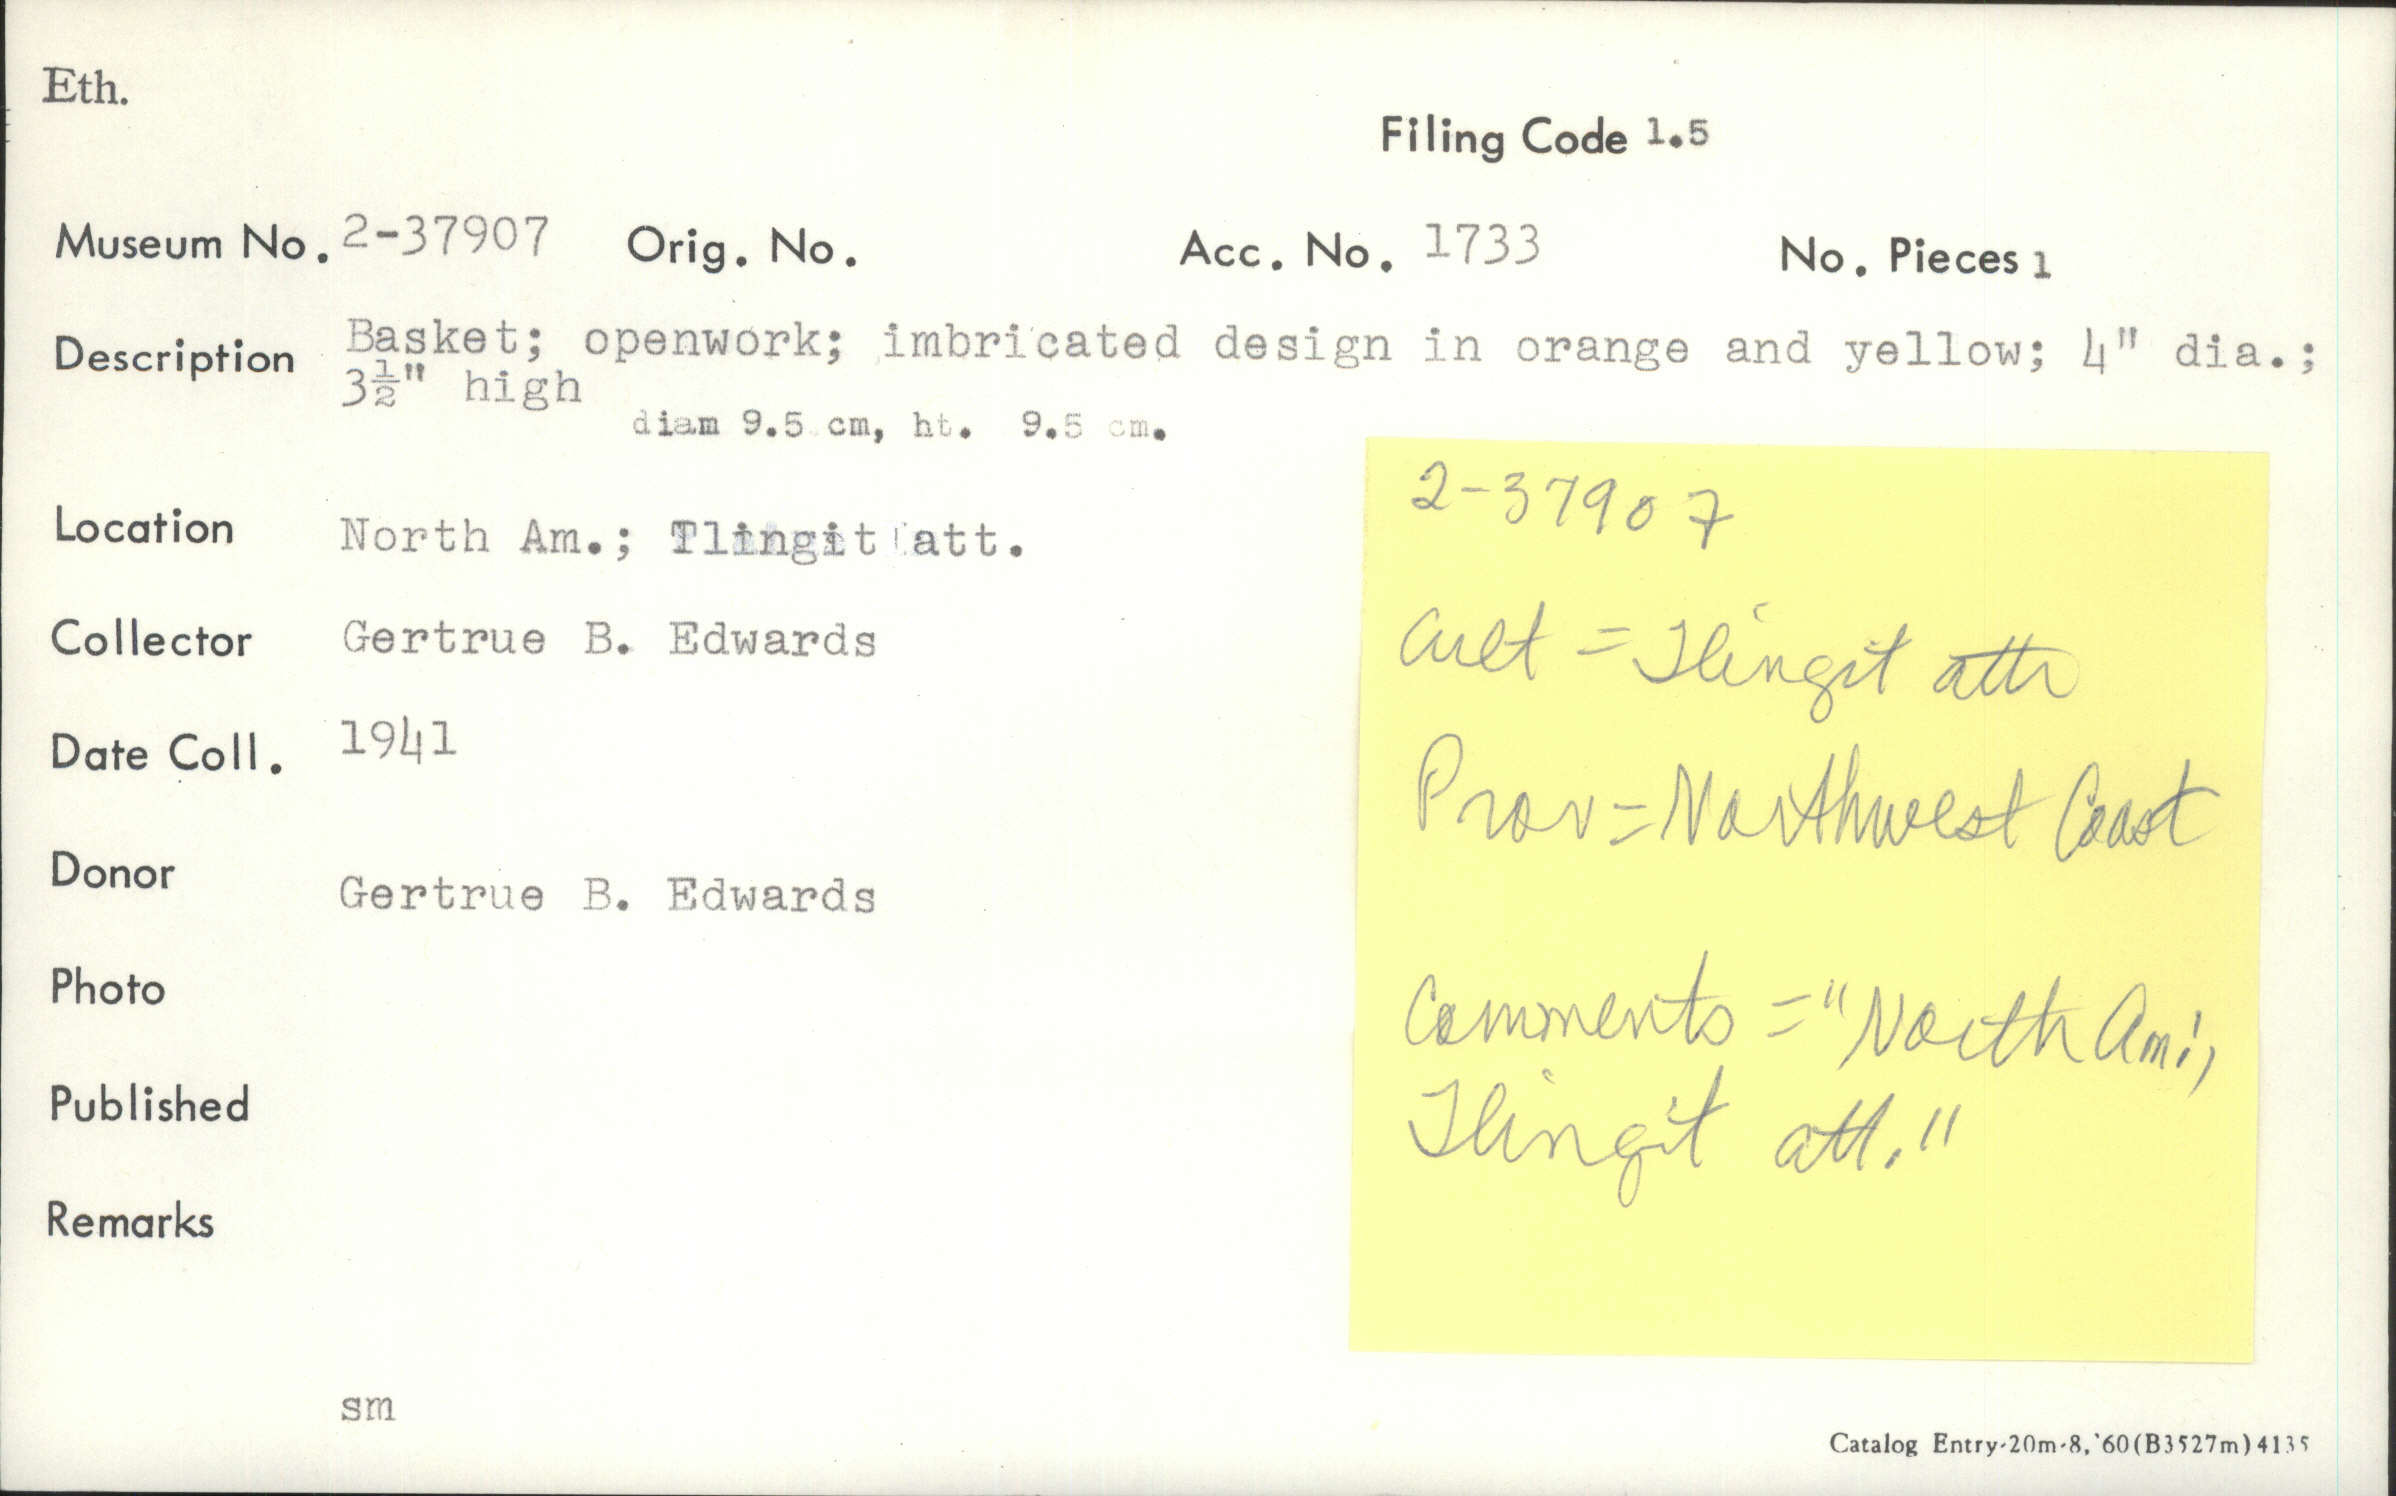 Eth.
Filing Code 1.5
Museum No. 2-37907 Orig. No. Acc. No. 1733 No. Pieces 1
Description Basket; openwork; imbricated design in orange and yellow; 4" dia.;
3½" high
diam 9.5 cm, ht. 9.5 cm.
Location North Am.; Tlingit att.
Collector Gertrue B. Edwards
Date Coll. 1941
Donor Gertrue B. Edwards
Photo
Published
Remarks
sm
2-37907
Cult = Tlingit attr
Prov = Northwest Coast
Comments = "North Am.;
Tlingit att."
Catalog Entry-20m-8,'60(B3527m)4135